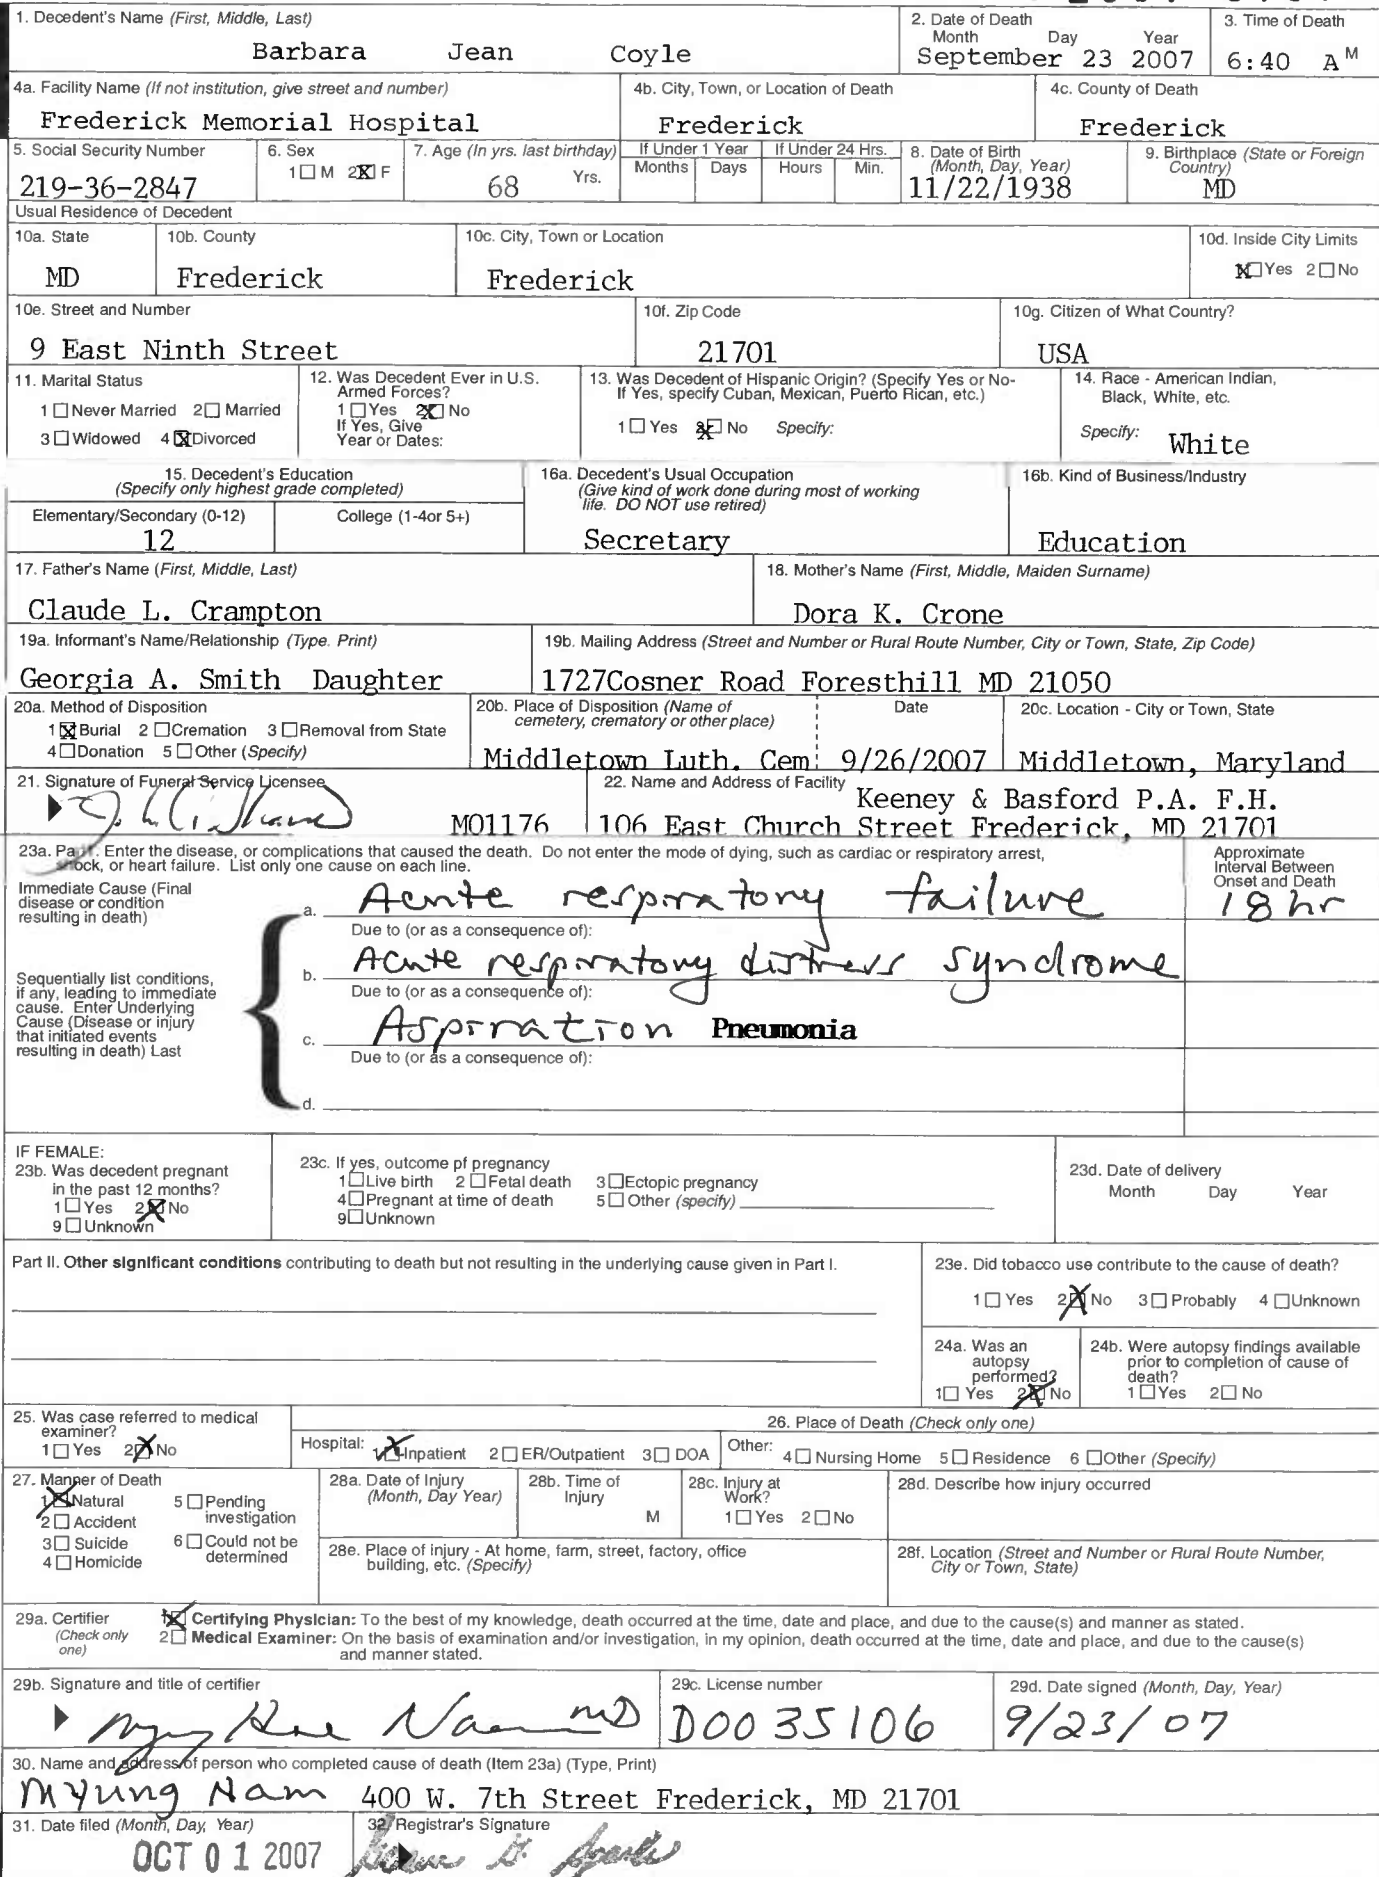 1. Decedent's Name (First, Middle, Last)
Barbara Jean Coyle
2. Date of Death
Month Day Year
September 23 2007
3. Time of Death
6:40 A M
4a. Facility Name (If not institution, give street and number)
Frederick Memorial Hospital
4b. City, Town, or Location of Death
Frederick
4c. County of Death
Frederick
5. Social Security Number
219-36-2847
6. Sex
1 M 2 F
7. Age (In yrs. last birthday)
68 Yrs.
If Under 1 Year
Months Days
If Under 24 Hrs.
Hours Min.
8. Date of Birth
(Month, Day, Year)
11/22/1938
9. Birthplace (State or Foreign
Country)
MD
Usual Residence of Decedent
10a. State
MD
10b. County
Frederick
10c. City, Town or Location
Frederick
10d. Inside City Limits
Yes 2 No
10e. Street and Number
9 East Ninth Street
10f. Zip Code
21701
10g. Citizen of What Country?
USA
11. Marital Status
1 Never Married 2 Married
3 Widowed 4 Divorced
12. Was Decedent Ever in U.S.
Armed Forces?
1 Yes 2 No
If Yes, Give
Year or Dates:
13. Was Decedent of Hispanic Origin? (Specify Yes or No-
If Yes, specify Cuban, Mexican, Puerto Rican, etc.)
1 Yes 2 No Specify:
14. Race - American Indian,
Black, White, etc.
Specify: White
15. Decedent's Education
(Specify only highest grade completed)
Elementary/Secondary (0-12)
12
College (1-4or 5+)
16a. Decedent's Usual Occupation
(Give kind of work done during most of working
life. DO NOT use retired)
Secretary
16b. Kind of Business/Industry
Education
17. Father's Name (First, Middle, Last)
Claude L. Crampton
18. Mother's Name (First, Middle, Maiden Surname)
Dora K. Crone
19a. Informant's Name/Relationship (Type. Print)
Georgia A. Smith Daughter
19b. Mailing Address (Street and Number or Rural Route Number, City or Town, State, Zip Code)
1727Cosner Road Foresthill MD 21050
20a. Method of Disposition
1 Burial 2 Cremation 3 Removal from State
4 Donation 5 Other (Specify)
20b. Place of Disposition (Name of
cemetery, crematory or other place)
Middletown Luth. Cem
Date
9/26/2007
20c. Location - City or Town, State
Middletown, Maryland
21. Signature of Funeral Service Licensee
M01176
22. Name and Address of Facility
Keeney & Basford P.A. F.H.
106 East Church Street Frederick, MD 21701
23a. Part I. Enter the disease, or complications that caused the death. Do not enter the mode of dying, such as cardiac or respiratory arrest,
shock, or heart failure. List only one cause on each line.
Approximate
Interval Between
Onset and Death
Immediate Cause (Final
disease or condition
resulting in death)
a. Acute respiratory failure 18 hr
Due to (or as a consequence of):
Sequentially list conditions,
if any, leading to immediate
cause. Enter Underlying
Cause (Disease or injury
that initiated events
resulting in death) Last
b. Acute respiratory distress syndrome
Due to (or as a consequence of):
c. Aspiration Pneumonia
Due to (or as a consequence of):
d.
IF FEMALE:
23b. Was decedent pregnant
in the past 12 months?
1 Yes 2 No
9 Unknown
23c. If yes, outcome pf pregnancy
1 Live birth 2 Fetal death 3 Ectopic pregnancy
4 Pregnant at time of death 5 Other (specify)
9 Unknown
23d. Date of delivery
Month Day Year
Part II. Other significant conditions contributing to death but not resulting in the underlying cause given in Part I.
23e. Did tobacco use contribute to the cause of death?
1 Yes 2 No 3 Probably 4 Unknown
24a. Was an
autopsy
performed?
1 Yes 2 No
24b. Were autopsy findings available
prior to completion of cause of
death?
1 Yes 2 No
25. Was case referred to medical
examiner?
1 Yes 2 No
26. Place of Death (Check only one)
Hospital: 1 Inpatient 2 ER/Outpatient 3 DOA
Other: 4 Nursing Home 5 Residence 6 Other (Specify)
27. Manner of Death
1 Natural 5 Pending
investigation
2 Accident
3 Suicide 6 Could not be
determined
4 Homicide
28a. Date of Injury
(Month, Day Year)
28b. Time of
Injury
M
28c. Injury at
Work?
1 Yes 2 No
28d. Describe how injury occurred
28e. Place of injury - At home, farm, street, factory, office
building, etc. (Specify)
28f. Location (Street and Number or Rural Route Number,
City or Town, State)
29a. Certifier
(Check only
one)
1 Certifying Physician: To the best of my knowledge, death occurred at the time, date and place, and due to the cause(s) and manner as stated.
2 Medical Examiner: On the basis of examination and/or investigation, in my opinion, death occurred at the time, date and place, and due to the cause(s)
and manner stated.
29b. Signature and title of certifier
Nam MD
29c. License number
D0035106
29d. Date signed (Month, Day, Year)
9/23/07
30. Name and address of person who completed cause of death (Item 23a) (Type, Print)
Myung Nam 400 W. 7th Street Frederick, MD 21701
31. Date filed (Month, Day, Year)
OCT 01 2007
32. Registrar's Signature